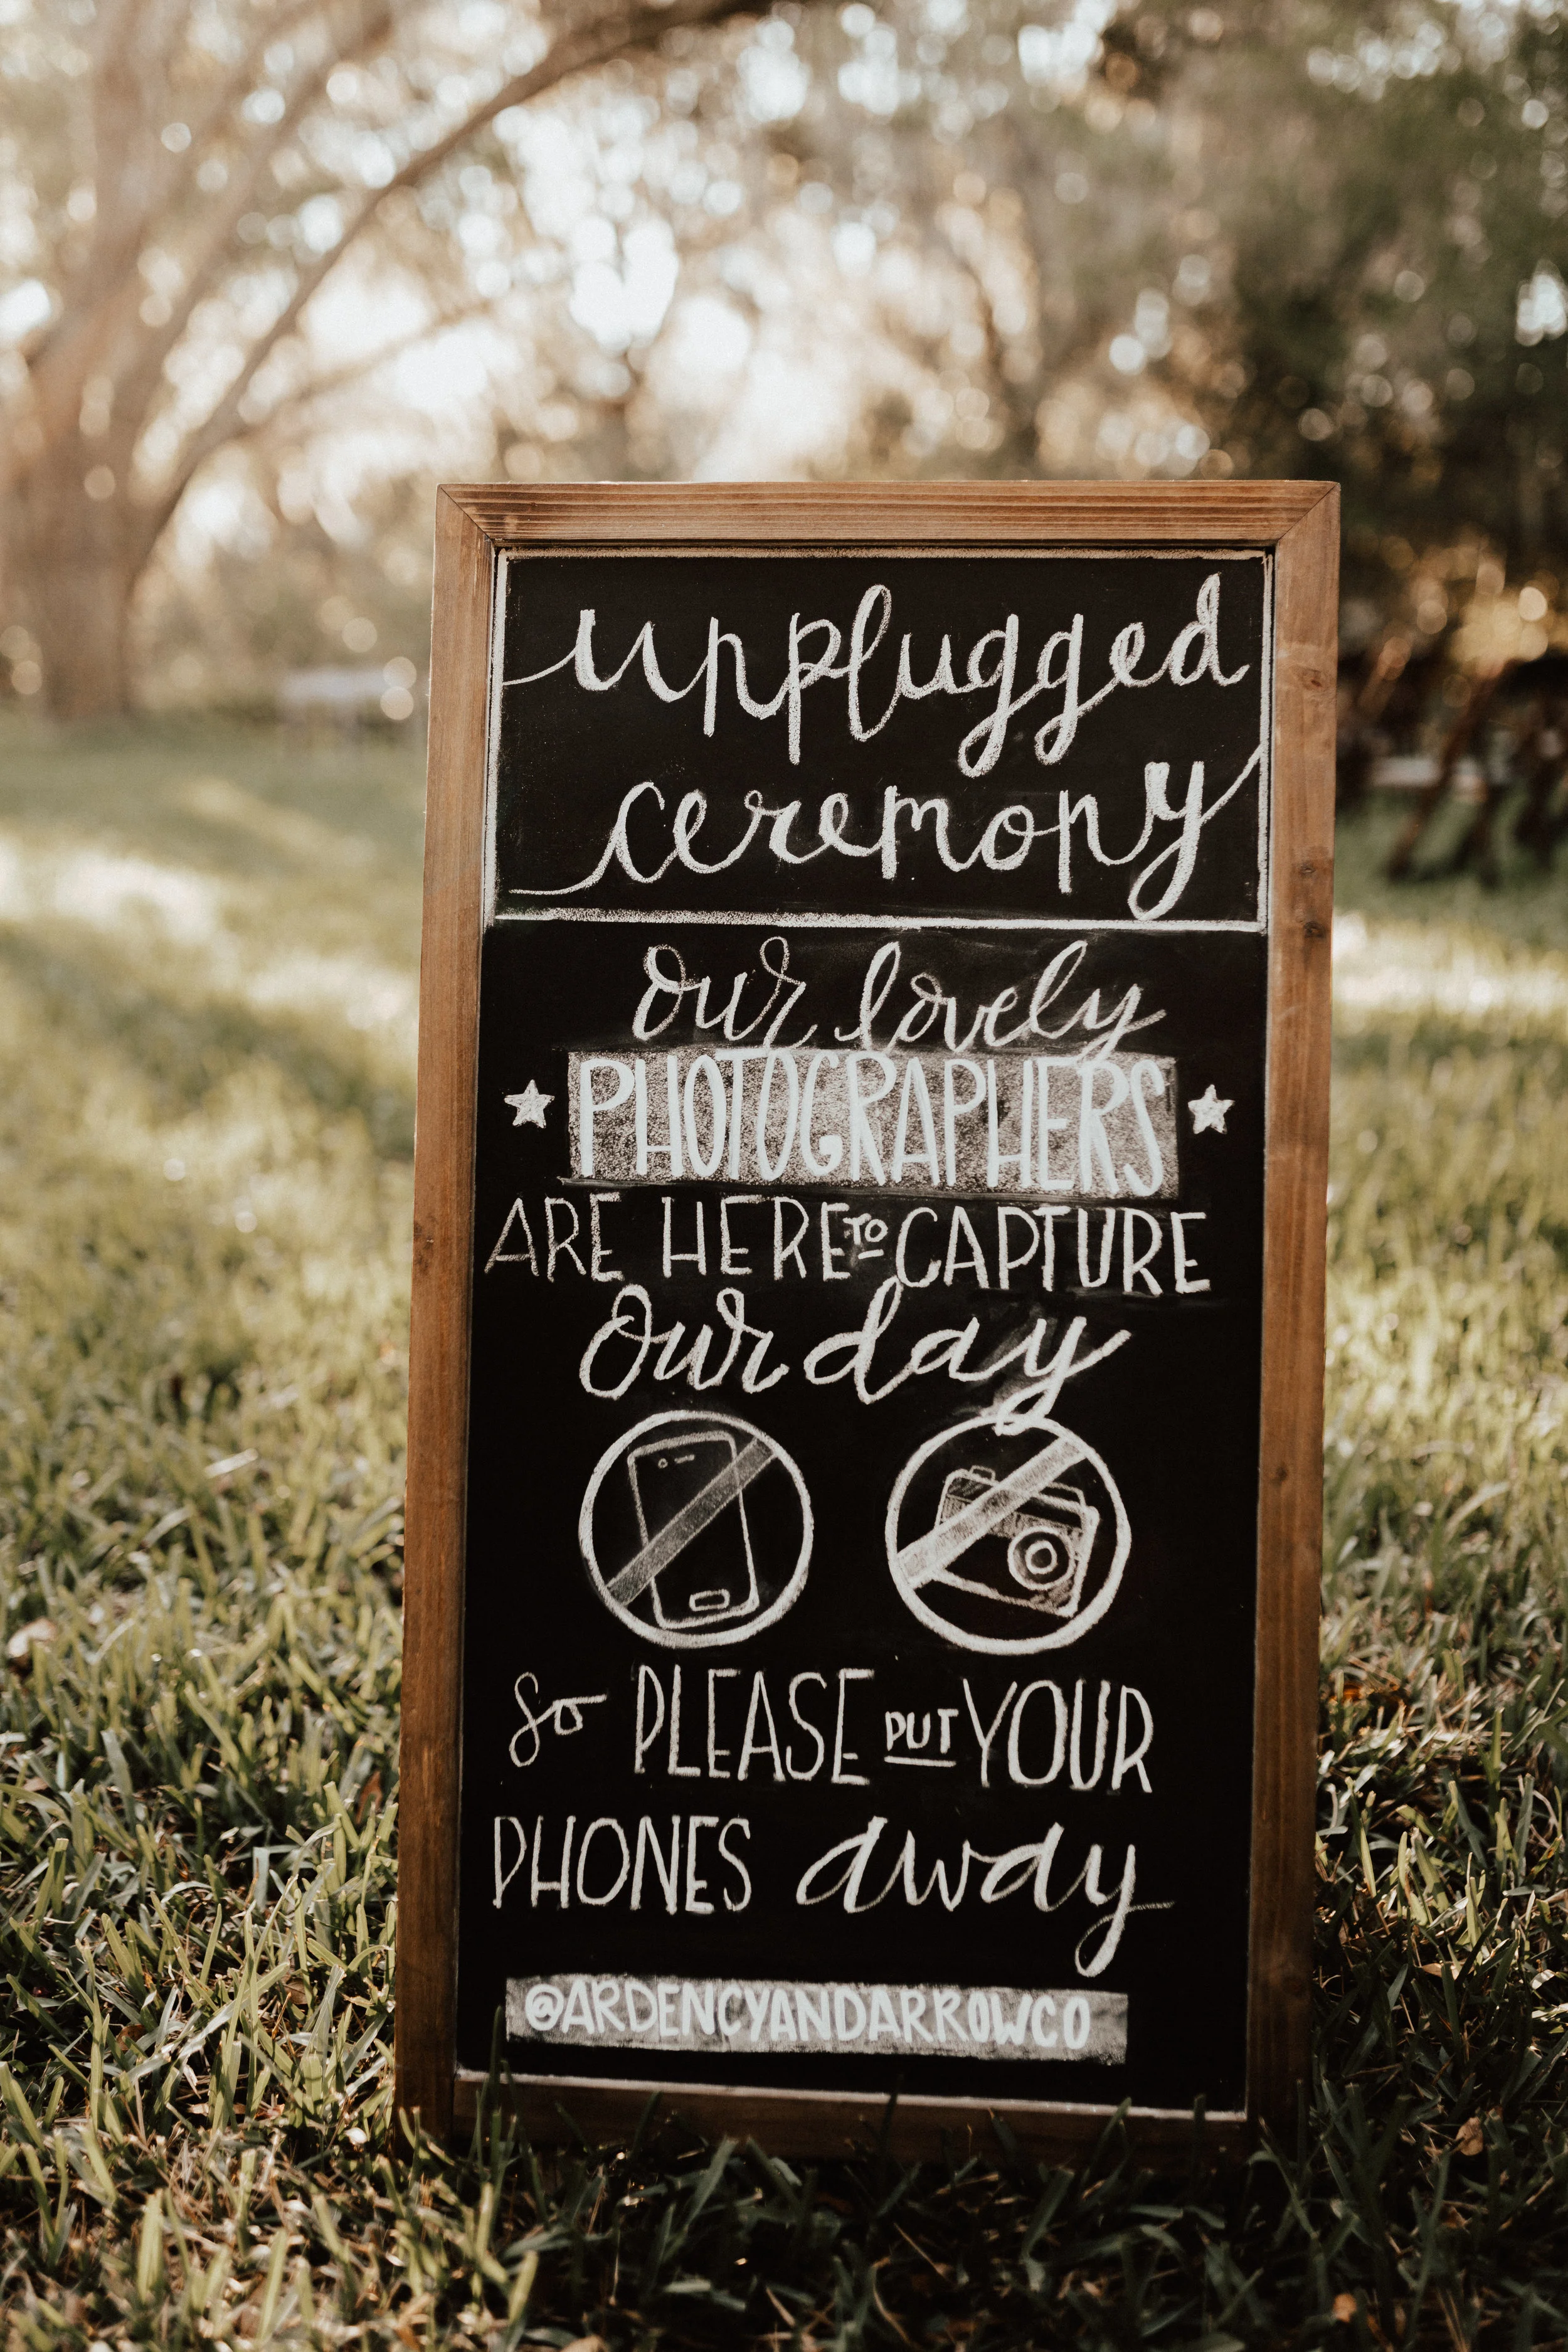 unplugged
ceremony
our lovely
PHOTOGRAPHERS
ARE HERE TO CAPTURE
Our day
So PLEASE PUT YOUR
PHONES away
@ARDENCYANDARROWCO